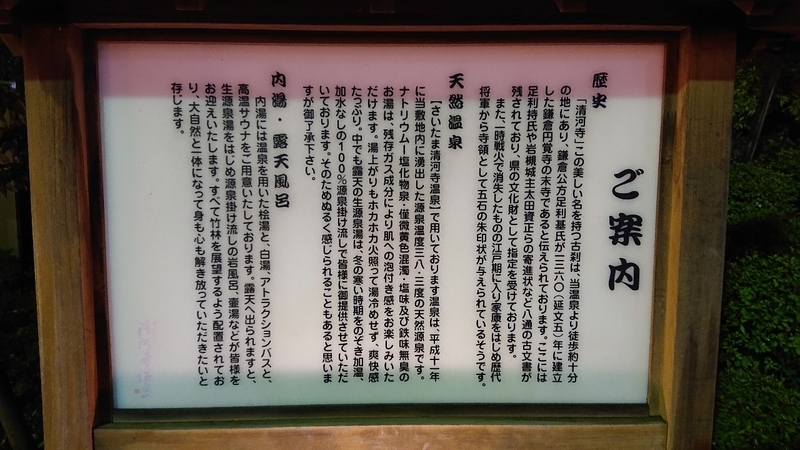 ご案内
歴史
「清河寺」この美しい名を持つ古刹は、当温泉より徒歩約十分
の地にあり、鎌倉公方足利基氏が一三六〇(延文五)年に建立
した鎌倉円覚寺の末寺であると伝えられております。ここには
足利持氏や岩槻城主太田資正らの寄進状など八通の古文書が
残されており、県の文化財として指定を受けております。
また、時戦火で消失したものの江戸期に入り家康をはじめ歴代
将軍から寺領として五石の朱印状が与えられているそうです。
天然温泉
【さいたま清河寺温泉】で用いております温泉は、平成十一年
に当敷地内に湧出した源泉温度三八・三度の天然源泉です。
ナトリウム―塩化物泉・僅微黄色混濁・塩味及び鉄味無臭の
お湯は、残存ガス成分により肌への泡付き感をお楽しみいた
だけます。湯上がりもホカホカ火照って湯冷めせず、爽快感
たっぷり。中でも露天の生源泉湯は、冬の寒い時期をのぞき加温、
加水なしの100%源泉掛け流しで皆様に御提供させていただ
いております。そのためぬるく感じられることもあると思いま
すが御了承下さい。
内湯・露天風呂
内湯には温泉を用いた桧湯と、白湯、アトラクションバスと、
高温サウナをご用意いたしております。露天へ出られますと、
生源泉湯をはじめ源泉掛け流しの岩風呂、壷湯などが皆様を
お迎えいたします。すべて竹林を展望するよう配置されてお
り、大自然と一体になって身も心も解き放っていただきたいと
存じます。